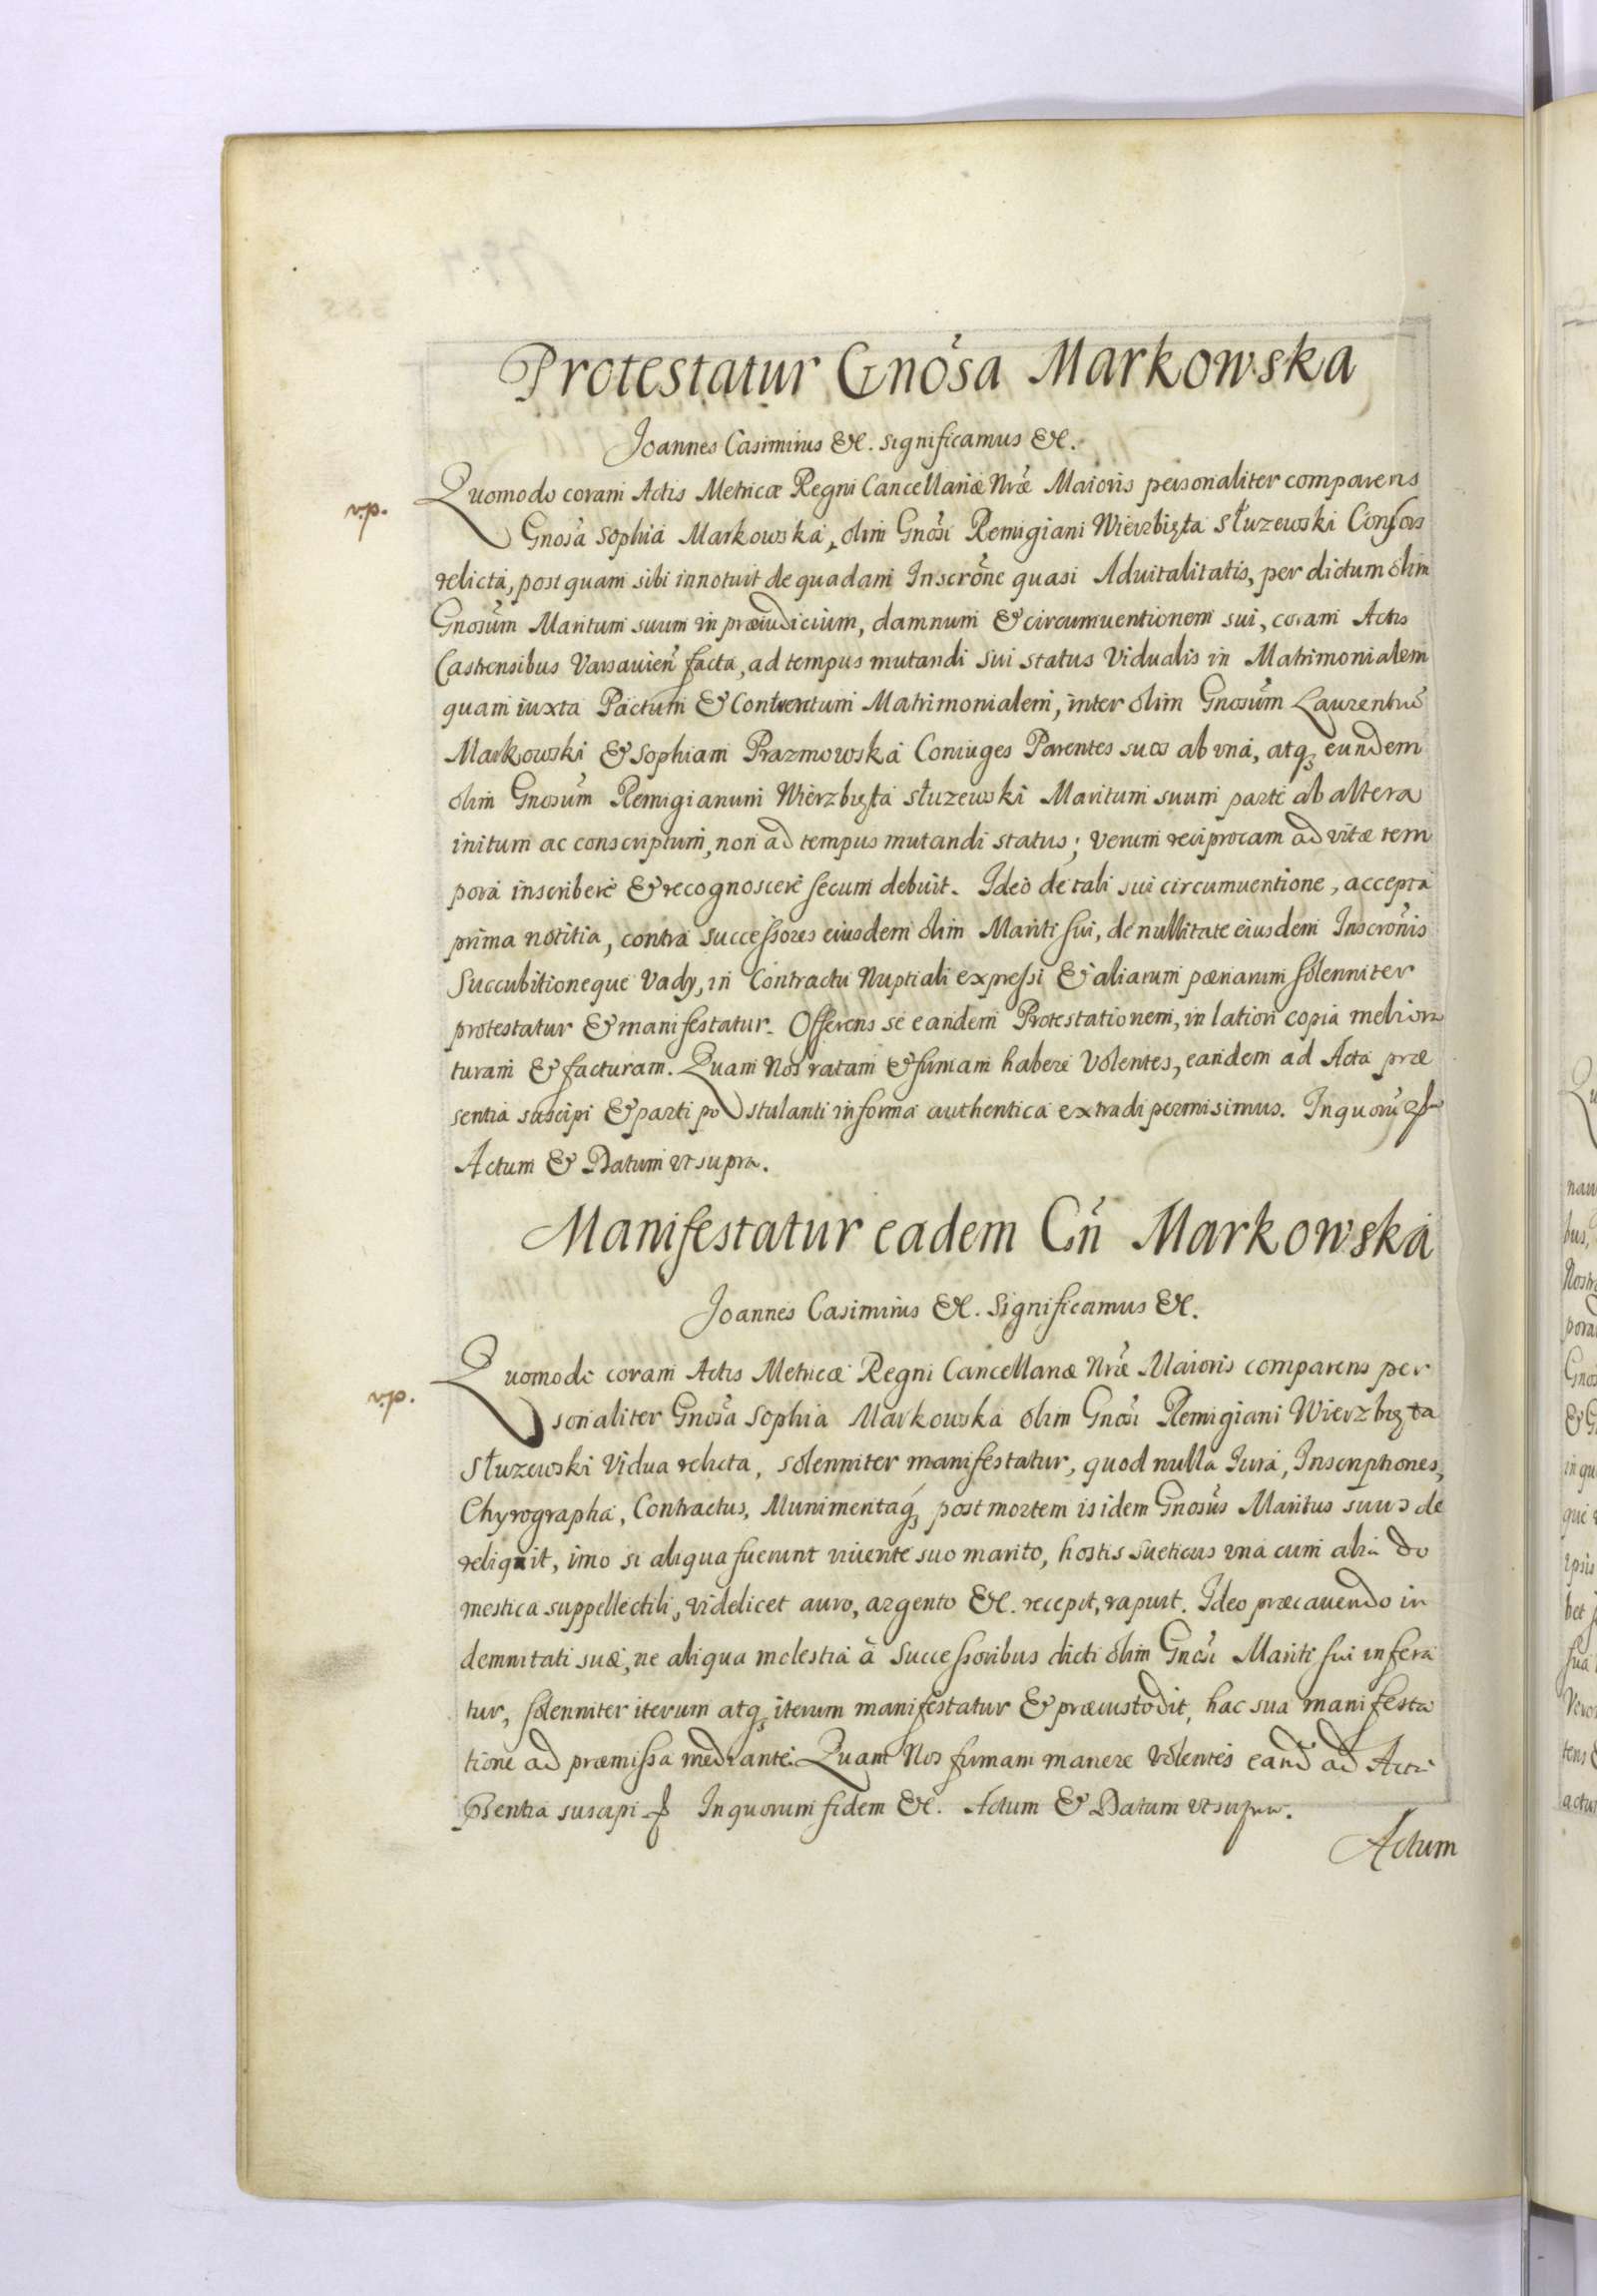 Protestatur Gnosa Markowska
Joannes Casimirus &c. significamus &c.
v.p.
Quomodo coram Actis Metricæ Regni Cancellariæ Nræ Maioris personaliter comparens
Gnosa Sophia Markowska, olim Gnosi Remigiani Wierzbięta Słuzewski Consors
relicta, postquam sibi innotuit de quadam Inscrone quasi Aduitalitatis, per dictum olim
Gnosum Maritum suum in præiudicium, damnum & circumuentionem sui, coram Actis
Castrensibus Varsauien facta, ad tempus mutandi sui status Vidualis in Matrimonialem
quam iuxta Pactum & Contentum Matrimonialem, inter olim Gnosum Laurentiu
Markowski & Sophiam Prazmowska Coniuges Parentes suos ab vna, atq eundem
olim Gnosum Remigianum Wierzbięta Słuzewski Maritum suum parte ab altera
initum ac conscriptum, non ad tempus mutandi status; verum reciprocam ad vitæ tem
pora inscribere & recognoscere secum debuit. Ideo de tali sui circumuentione, accepta
prima notitia, contra successores eiusdem olim Mariti sui, de nullitate eiusdem Inscronis
Succubitioneque Vady, in Contractu Nuptiali expressi & aliarum pænarum solenniter
protestatur & manifestatur. Offerens se eandem Protestationem, in latiori copia meliora
turam & facturam. Quam Nos ratam & firmam habere Volentes, eandem ad Acta præ
sentia suscipi & parti postulanti in forma authentica extradi permisimus. In quoru
Actum & Datum vt supra.
Manifestatur eadem Gn Markowska
Joannes Casimirus &c. Significamus &c.
v.p.
Quomodo coram Actis Metricæ Regni Cancellariæ Nræ Maioris comparens per
sonaliter Gnosa Sophia Markowska olim Gnosi Remigiani Wierzbięta
Słuzewski Vidua relicta, solenniter manifestatur, quod nulla Iura, Inscriptiones,
Chyrographa, Contractus, Munimentaq post mortem is idem Gnosus Maritus suus de
reliquit, imo si aliqua fuerunt viuente suo marito, hostis Sueticus vna cum alia do
mestica suppellectili, videlicet auro, argento &c. recepit, rapuit. Ideo præcauendo in
demnitati suæ, ne aliqua molestia à Successoribus dicti olim Gnosi Mariti sui infera
tur, solenniter iterum atq iterum manifestatur & præcustodit, hac sua manifesta
tione ad præmissa mediante. Quam Nos firmam manere volentes eand ad Acta
psentia suscipi In quorum fidem &c. Actum & Datum vt supra.
Actum